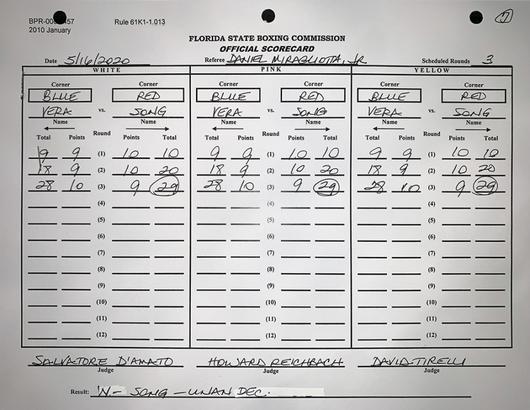 BPR-00 457 Rule 61K1-1.013
2010 January
FLORIDA STATE BOXING COMMISSION
OFFICIAL SCORECARD
Date 5/16/2020 Referee DANIEL MIRAGLIOTTA, JR Scheduled Rounds 3
WHITE PINK YELLOW
Corner Corner Corner Corner Corner Corner
BLUE RED BLUE RED BLUE RED
VERA vs. SONG VERA vs. SONG VERA vs. SONG
Name Name Name Name Name Name
Total Points Round Points Total Total Points Round Points Total Total Points Round Points Total
9 9 (1) 10 10 9 9 (1) 10 10 9 9 (1) 10 10
18 9 (2) 10 20 18 9 (2) 10 20 18 9 (2) 10 20
28 10 (3) 9 29 28 10 (3) 9 29 28 10 (3) 9 29
(4) (4) (4)
(5) (5) (5)
(6) (6) (6)
(7) (7) (7)
(8) (8) (8)
(9) (9) (9)
(10) (10) (10)
(11) (11) (11)
(12) (12) (12)
SALVATORE D'AMATO HOWARD REICHBACH DAVID TIRELLI
Judge Judge Judge
Result: W- SONG - UNAN DEC.